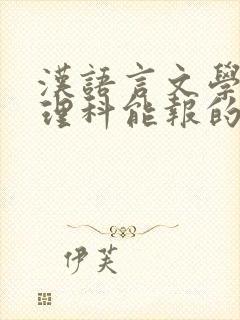 漢語言文學
理科能報的
伊芙